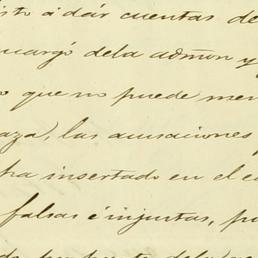 isto á dár cuentas de
ncargó dela admon y
o que no puede men
aza, las acusaciones
ha insertado en el co
falsas é injustas, pu